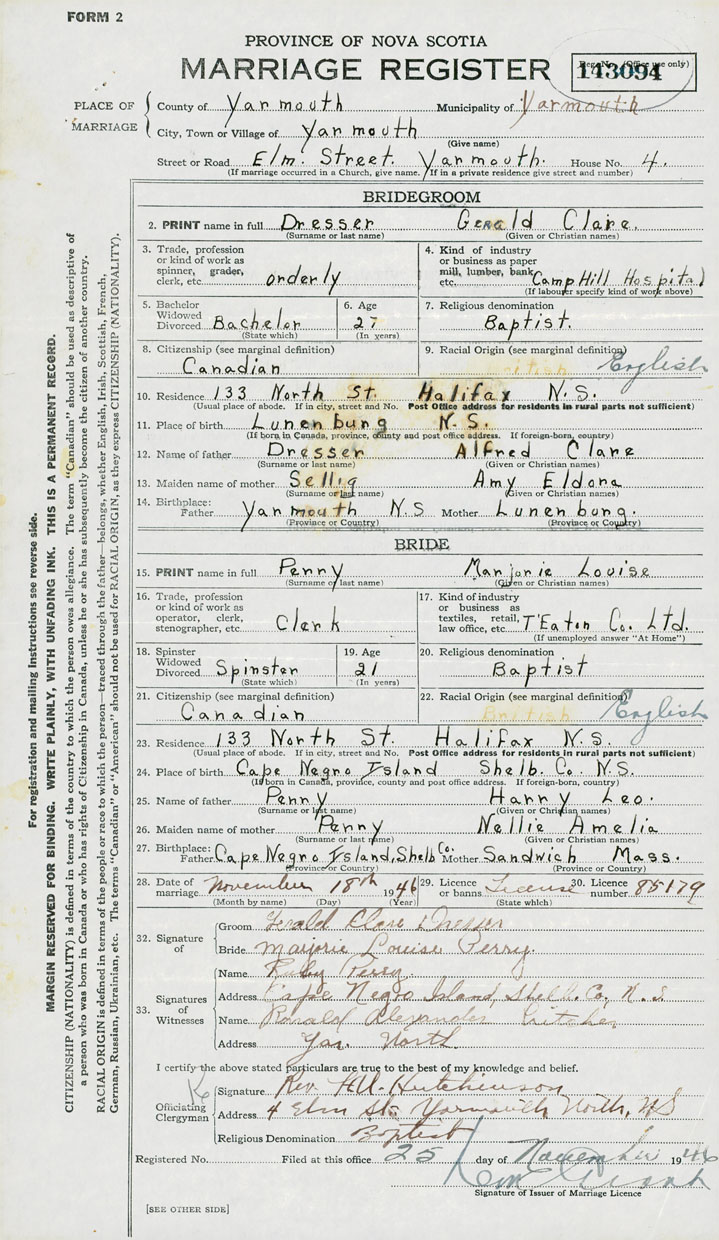 FORM 2
PROVINCE OF NOVA SCOTIA
MARRIAGE REGISTER
Reg. No. (Office use only)
143094
PLACE OF MARRIAGE
County of Yarmouth Municipality of Yarmouth
City, Town or Village of Yarmouth
(Give name)
Street or Road Elm. Street. Yarmouth. House No. 4.
(If marriage occurred in a Church, give name. If in a private residence give street and number)
BRIDEGROOM
2. PRINT name in full Dresser Gerald Clare.
(Surname or last name) (Given or Christian names)
3. Trade, profession or kind of work as spinner, grader, clerk, etc. orderly
4. Kind of industry or business as paper mill, lumber, bank, etc. Camp Hill Hospital
(If labourer specify kind of work above)
5. Bachelor Widowed Divorced Bachelor (State which)
6. Age 27 (In years)
7. Religious denomination Baptist.
8. Citizenship (see marginal definition) Canadian
9. Racial Origin (see marginal definition) English
10. Residence 133 North St. Halifax N.S.
(Usual place of abode. If in city, street and No. Post Office address for residents in rural parts not sufficient)
11. Place of birth Lunenburg N.S.
(If born in Canada, province, county and post office address. If foreign-born, country)
12. Name of father Dresser Alfred Clare
(Surname or last name) (Given or Christian names)
13. Maiden name of mother Sellig Amy Eldora
(Surname or last name) (Given or Christian names)
14. Birthplace: Father Yarmouth N S Mother Lunenburg.
(Province or Country) (Province or Country)
BRIDE
15. PRINT name in full Penny Marjorie Louise
(Surname or last name) (Given or Christian names)
16. Trade, profession or kind of work as operator, clerk, stenographer, etc. Clerk
17. Kind of industry or business as textiles, retail, law office, etc. T'Eaton Co. Ltd.
(If unemployed answer "At Home")
18. Spinster Widowed Divorced Spinster (State which)
19. Age 21 (In years)
20. Religious denomination Baptist
21. Citizenship (see marginal definition) Canadian
22. Racial Origin (see marginal definition) British English
23. Residence 133 North St. Halifax N.S.
(Usual place of abode. If in city, street and No. Post Office address for residents in rural parts not sufficient)
24. Place of birth Cape Negro Island Shelb. Co. N.S.
(If born in Canada, province, county and post office address. If foreign-born, country)
25. Name of father Penny Harry Leo.
(Surname or last name) (Given or Christian names)
26. Maiden name of mother Penny Nellie Amelia
(Surname or last name) (Given or Christian names)
27. Birthplace: Father Cape Negro Island, Shelb Co. Mother Sandwich Mass.
(Province or Country) (Province or Country)
28. Date of marriage November 18th 1946 29. Licence or banns License 30. Licence number 85179
(Month by name) (Day) (Year) (State which)
32. Signature of
Groom Gerald Clare Dresser
Bride Marjorie Louise Perry.
33. Signatures of Witnesses
Name Ruby Perry.
Address Cape Negro Island, Shelb. Co. N.S
Name Ronald Alexander
Address Yar. North.
I certify the above stated particulars are true to the best of my knowledge and belief.
Officiating Clergyman
Signature Rev. Hutchinson
Address 4 Elm St. Yarmouth North, NS
Religious Denomination Baptist
Registered No. Filed at this office 25 day of November 1946
Signature of Issuer of Marriage Licence
[SEE OTHER SIDE]
For registration and mailing Instructions see reverse side.
MARGIN RESERVED FOR BINDING. WRITE PLAINLY, WITH UNFADING INK. THIS IS A PERMANENT RECORD.
CITIZENSHIP (NATIONALITY) is defined in terms of the country to which the person owes allegiance. The term "Canadian" should be used as descriptive of
a person who was born in Canada or who has rights of Citizenship in Canada, unless he or she has subsequently become the citizen of another country.
RACIAL ORIGIN is defined in terms of the people or race to which the person—traced through the father—belongs, whether English, Irish, Scottish, French,
German, Russian, Ukrainian, etc. The terms "Canadian" or "American" should not be used for RACIAL ORIGIN, as they express CITIZENSHIP (NATIONALITY).